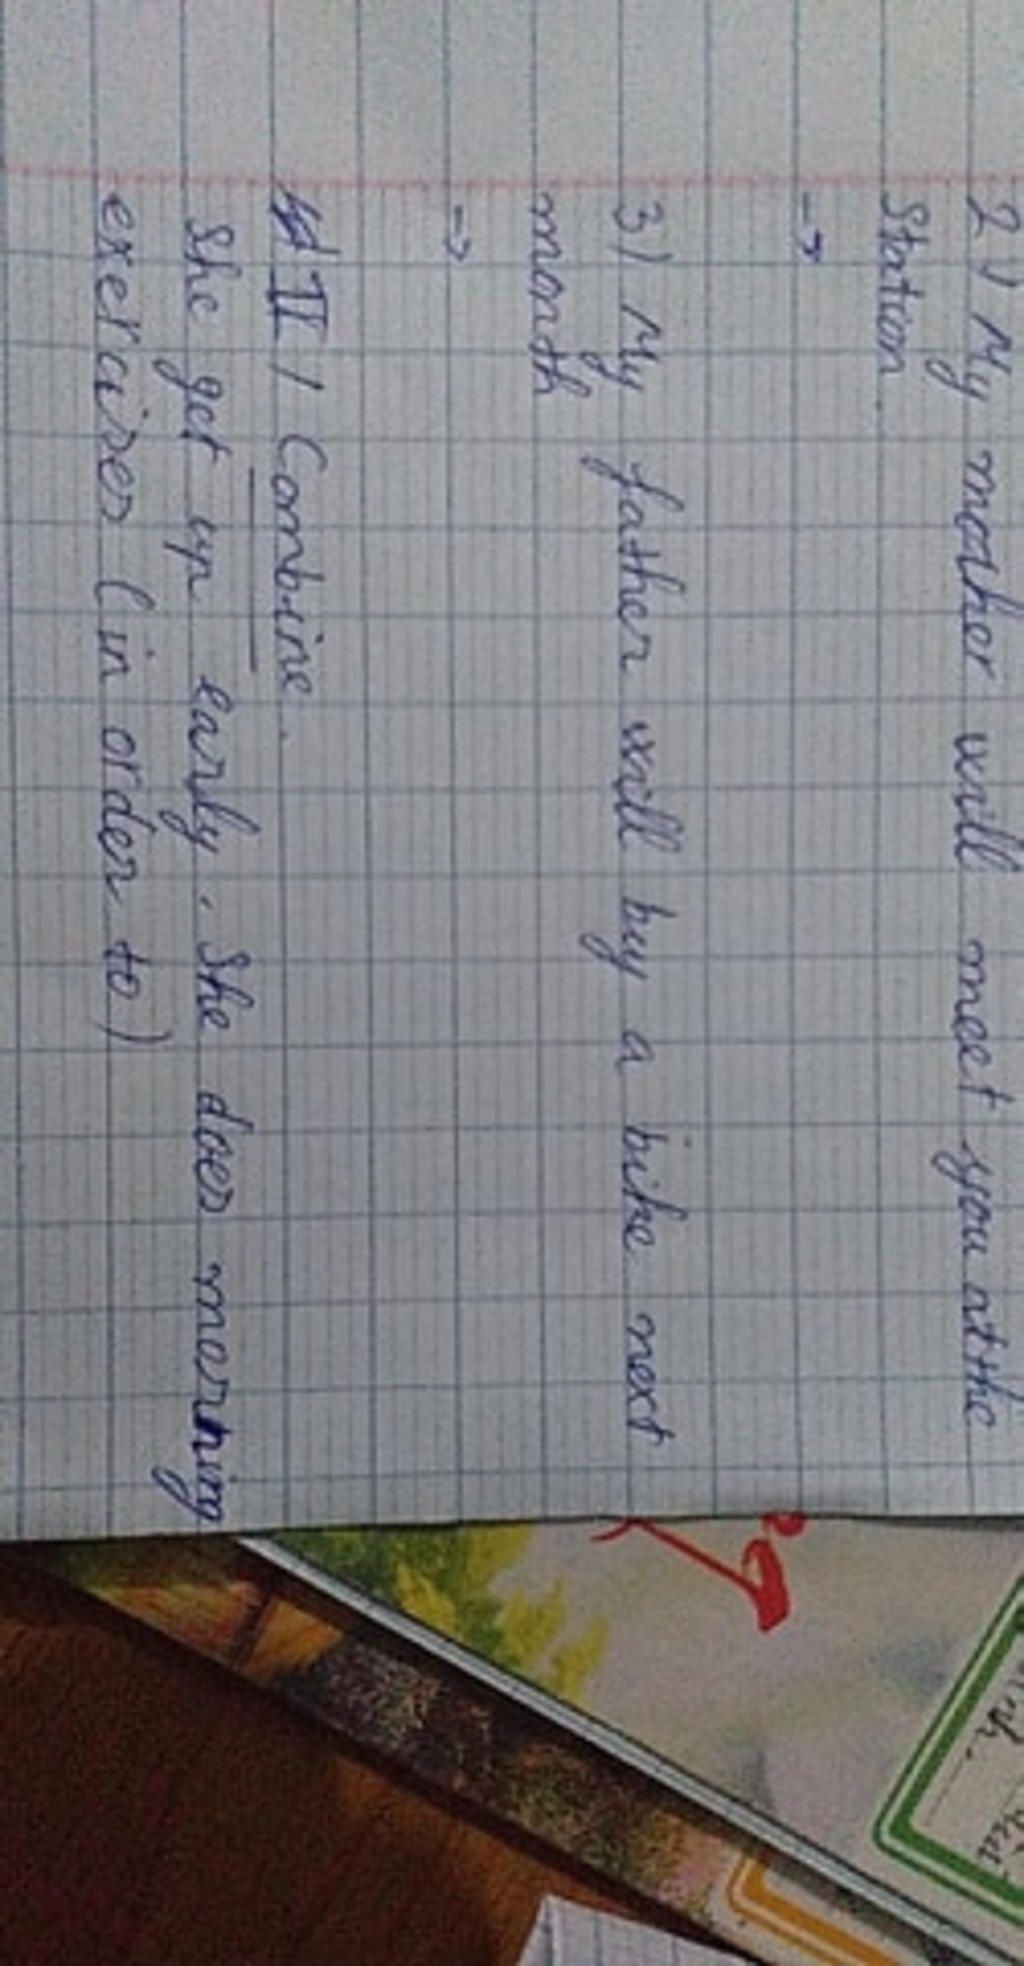 2) My mother will meet you at the
Station
->
3) My father will buy a bike next
month
->
II / Combine.
She get up early. She does morning
exercises (in order to)